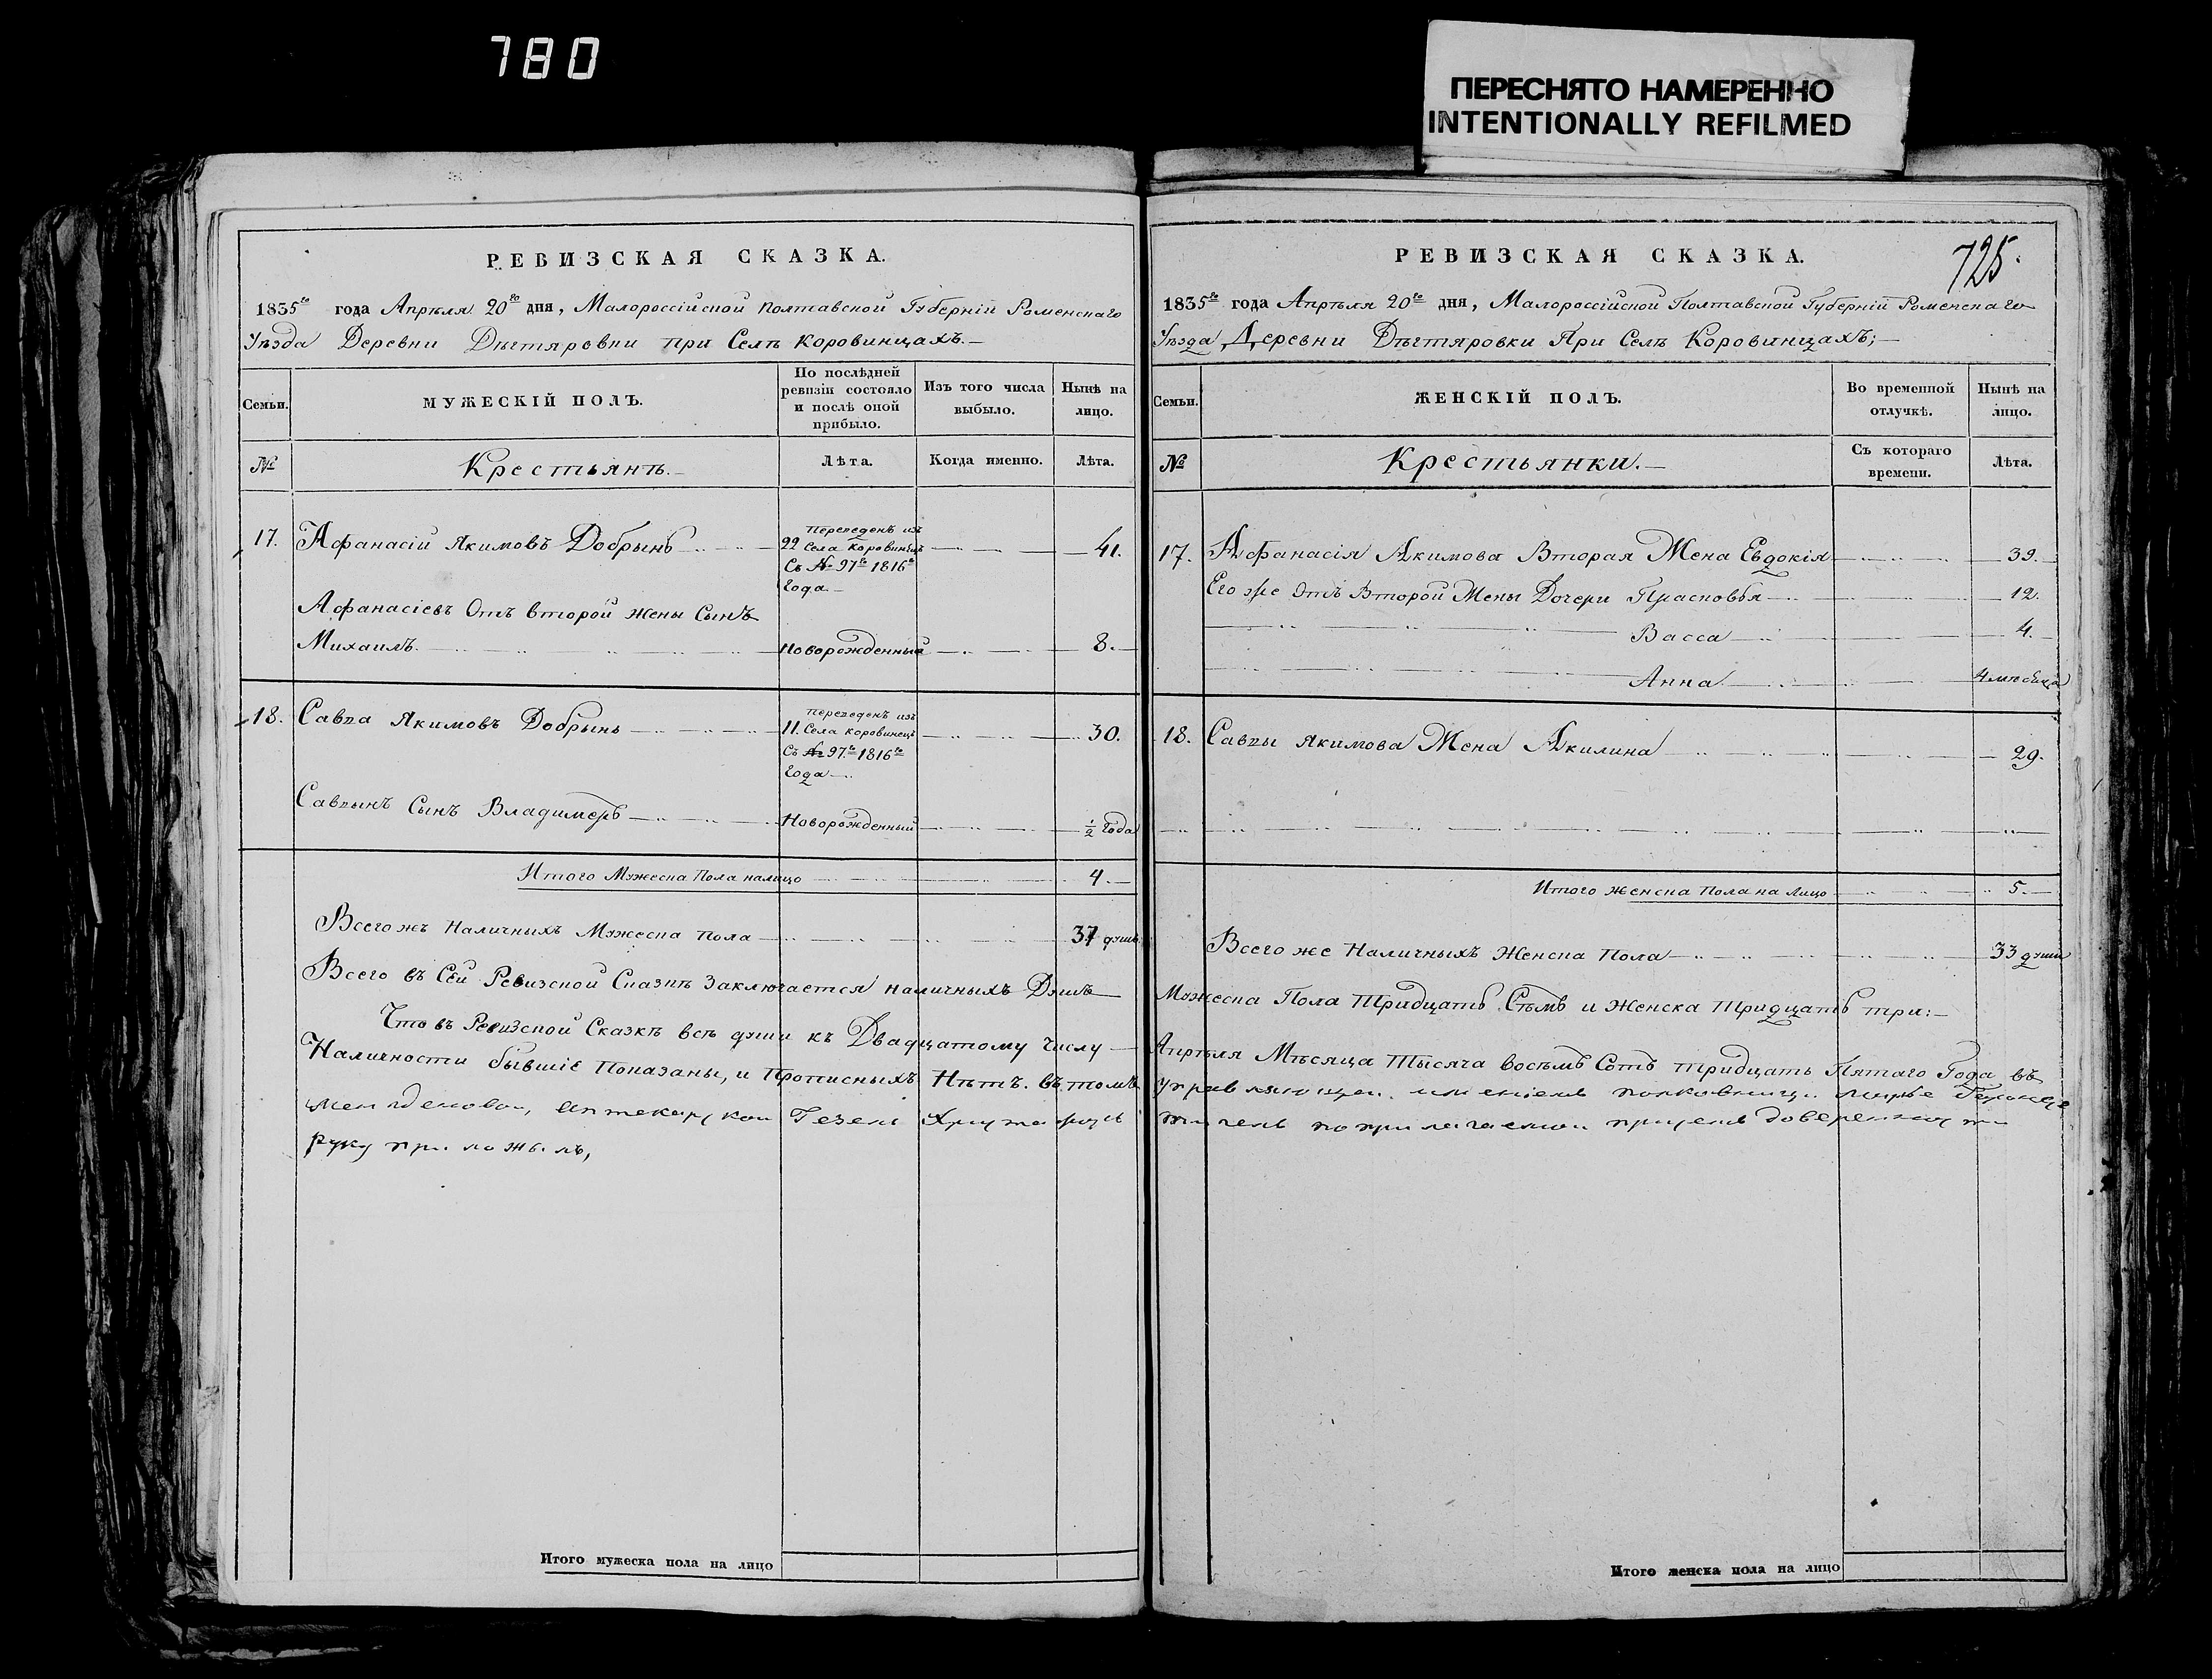 780
ПЕРЕСНЯТО НАМЕРЕННО
INTENTIONALLY REFILMED
РЕВИЗСКАЯ СКАЗКА.
1835го года Апрѣля 20го дня, Малороссійской полтавской Губерніи Роменскаго
Уѣзда Деревни Дѣгтяровки при Селѣ Коровинцахъ.
Семьи.
МУЖЕСКІЙ ПОЛЪ.
По послѣдней ревизіи состояло и послѣ оной прибыло.
Изъ того числа выбыло.
Нынѣ на лицо.
№
Крестьянъ.
Лѣта.
Когда именно.
Лѣта.
17. Афанасій Якимовъ Добрынь 22 Переведенъ изъ Села Коровинецъ 41.
Съ № 97го 1816го
Года.
Афанасіевъ Отъ второй жены Сынъ
Михаилъ новорожденный 8.
18. Савва Якимовъ Добрынь 11. Переведенъ изъ Села Коровинецъ 30.
Съ № 97го 1816го
Года
Саввынъ Сынъ Владимеръ Новорожденный ½ Года
Итого Мужеска Пола налицо 4.
Всегожъ Наличныхъ Мужеска пола 37 душъ
Всего въ Сей Ревизской Сказкѣ Заключается наличныхъ Душъ
Что въ Ревизской Сказкѣ всѣ души къ Двадцатому Числу
Наличности бывшіе Показаны, и Прописныхъ Нѣтъ. въ томъ
аптекарской Гезель
руку приложилъ,
Итого мужеска пола на лицо
РЕВИЗСКАЯ СКАЗКА.
725.
1835го года Апрѣля 20го дня, Малороссійской Полтавской Губерніи Роменскаго
Уѣзда, Деревни Дѣгтяровки При Селѣ Коровинцахъ;
Семьи.
ЖЕНСКІЙ ПОЛЪ.
Во временной отлучкѣ.
Нынѣ на лицо.
№
Крестьянки.
Съ котораго времени.
Лѣта.
17. Афанасія Акимова Вторая Жена Евдокія 39.
Его же Отъ Второй Жены Дочери Прасковья 12.
Васса 4.
Анна 4 мѣсяца
18. Саввы Якимова Жена Акилина 29.
Итого женска Пола на Лицо 5.
Всего же Наличныхъ Женска Пола 33 души
Мужеска Пола Тридцать Сѣмь и Женска Тридцать три:
Апрѣля Мѣсяца Тысяча восѣмь Сотъ тридцать Пятаго Года въ
имѣніемъ полковницы
по прилагаемой присемъ довѣренности
Итого женска пола на лицо